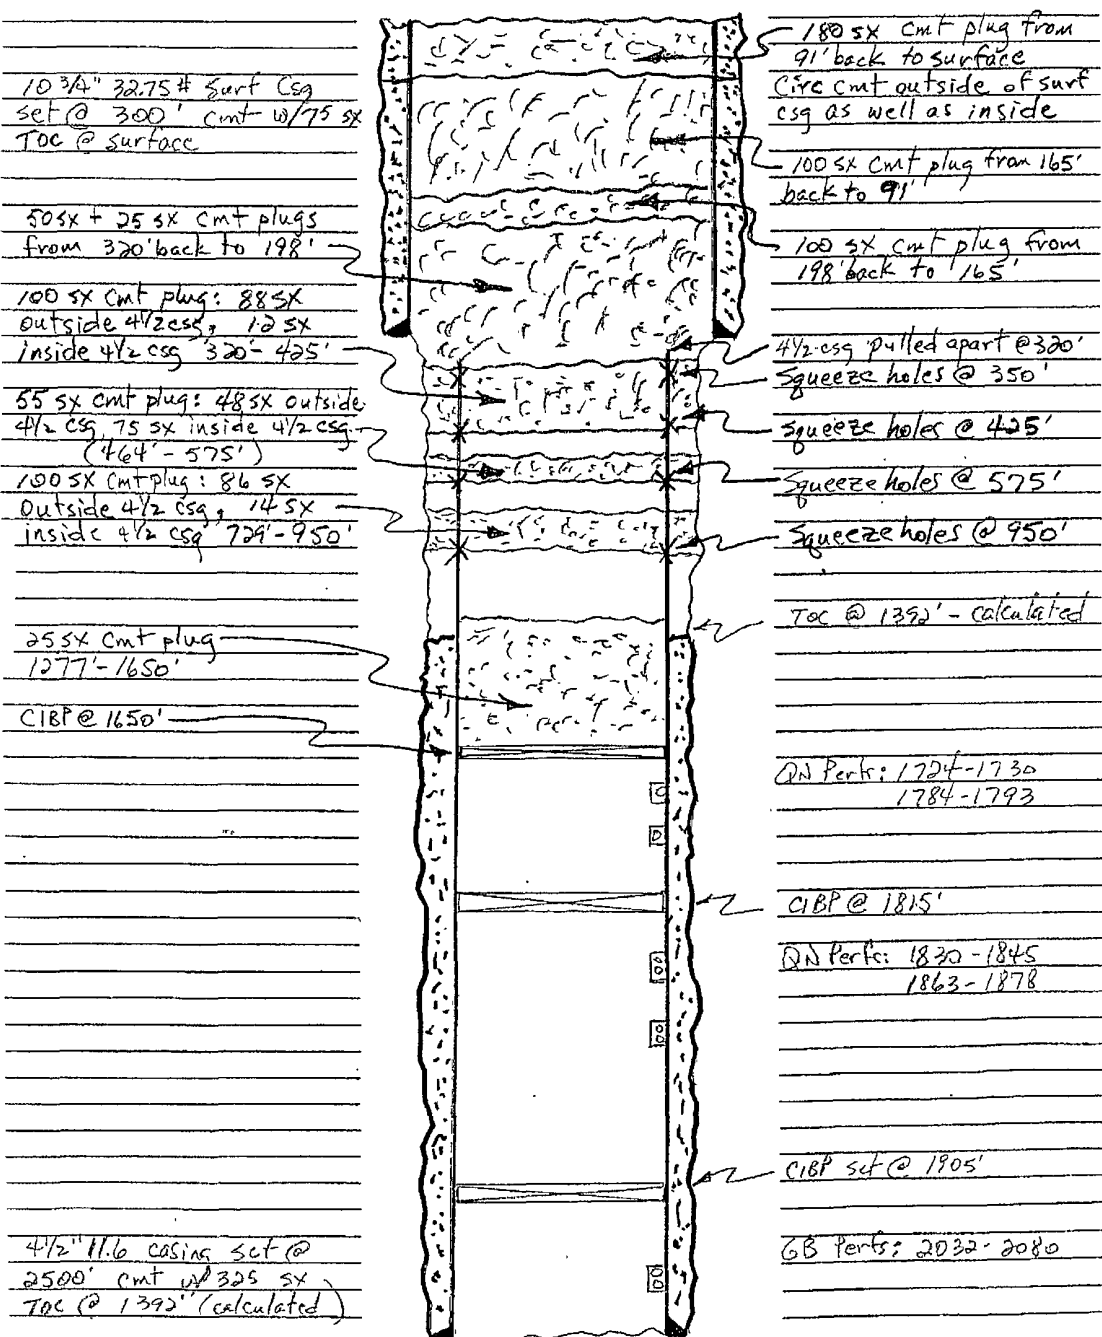 10 3/4" 32.75# Surf Csg
set @ 300' cmt w/75 sx
TOC @ surface
50sx + 25 sx cmt plugs
from 320' back to 198'
100 sx cmt plug: 88 sx
outside 4 1/2 csg, 12 sx
inside 4 1/2 csg 320'-425'
55 sx cmt plug: 48 sx outside
4 1/2 csg, 75 sx inside 4 1/2 csg
(464'-575')
100 sx cmt plug: 86 sx
outside 4 1/2 csg, 14 sx
inside 4 1/2 csg 729'-950'
25 sx cmt plug
1277'-1650'
CIBP @ 1650'
4 1/2" 11.6 casing set @
2500' cmt w/ 325 sx
TOC @ 1392' (calculated)
180 sx cmt plug from
91' back to surface
Circ cmt outside of surf
csg as well as inside
100 sx cmt plug from 165'
back to 91'
100 sx cmt plug from
198' back to 165'
4 1/2 csg pulled apart @ 320'
Squeeze holes @ 350'
Squeeze holes @ 425'
Squeeze holes @ 575'
Squeeze holes @ 950'
TOC @ 1392' - calculated
QN Perfs: 1724-1730
1784-1793
CIBP @ 1815'
QN Perfs: 1830-1845
1863-1878
CIBP set @ 1905'
GB Perfs: 2032-2080